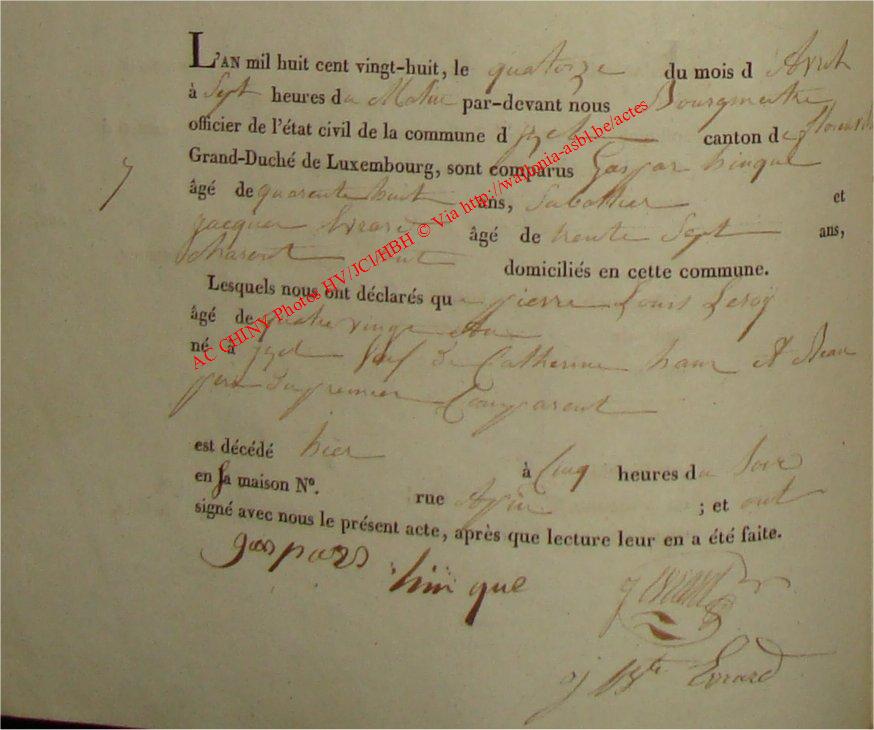 L'AN mil huit cent vingt-huit, le quatorze du mois d Avril
à Sept heures du Matin par-devant nous Bourgmestre
officier de l'état civil de la commune d jzel canton de florenville
Grand-Duché de Luxembourg, sont comparus Gaspar hinque
âgé de quarente huit ans, Sabottier et
jacques Evrard âgé de trente Sept ans,
domiciliés en cette commune.
Lesquels nous ont déclarés que pierre Louis Leroÿ
âgé de quatre vingt
né à jzel Veuf de Catherine Et Beau
pere du premier Comparent
est décédé hier à Cinq heures du Soir
en sa maison Nº. rue ; et ont
signé avec nous le présent acte, après que lecture leur en a été faite.
gaspard hinque
j Evrard
j Bte Evrard
AC CHINY Photos HV/JCI/HBH © Via http://wallonia-asbl.be/actes